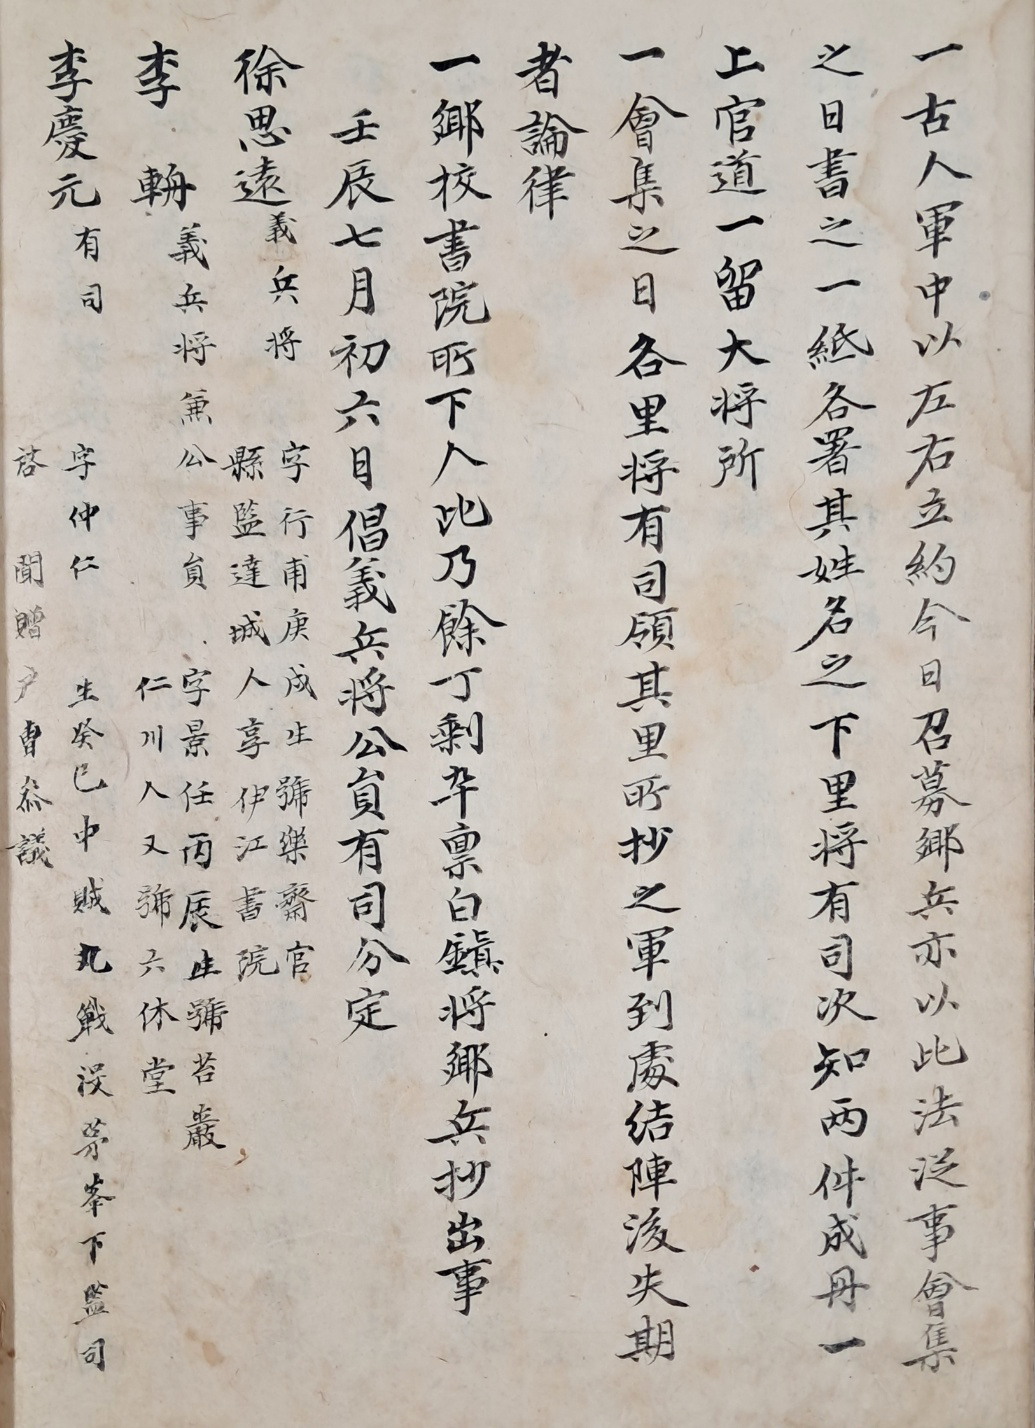 一古人軍中以左右立約今日召募鄕兵亦以此法從事會集
之日書之一紙各署其姓名之下里将有司次知兩件成冊一
上官道一留大将所
一會集之日各里将有司領其里所抄之軍到處結陣後失期
者論律
一鄕校書院所下人此乃餘丁剩卒禀白鎮将鄕兵抄出事
壬辰七月初六日倡義兵将公員有司分定
徐思遠 義兵将
字行甫庚戌生號樂齋官
縣監達城人享伊江書院
李輈 義兵将兼公事員
字景任丙辰生號苔巖
仁川人又號六休堂
李慶元 有司
字仲仁 生癸巳中賊丸戰沒茅峯下監司
啓 聞贈戶曹叅議